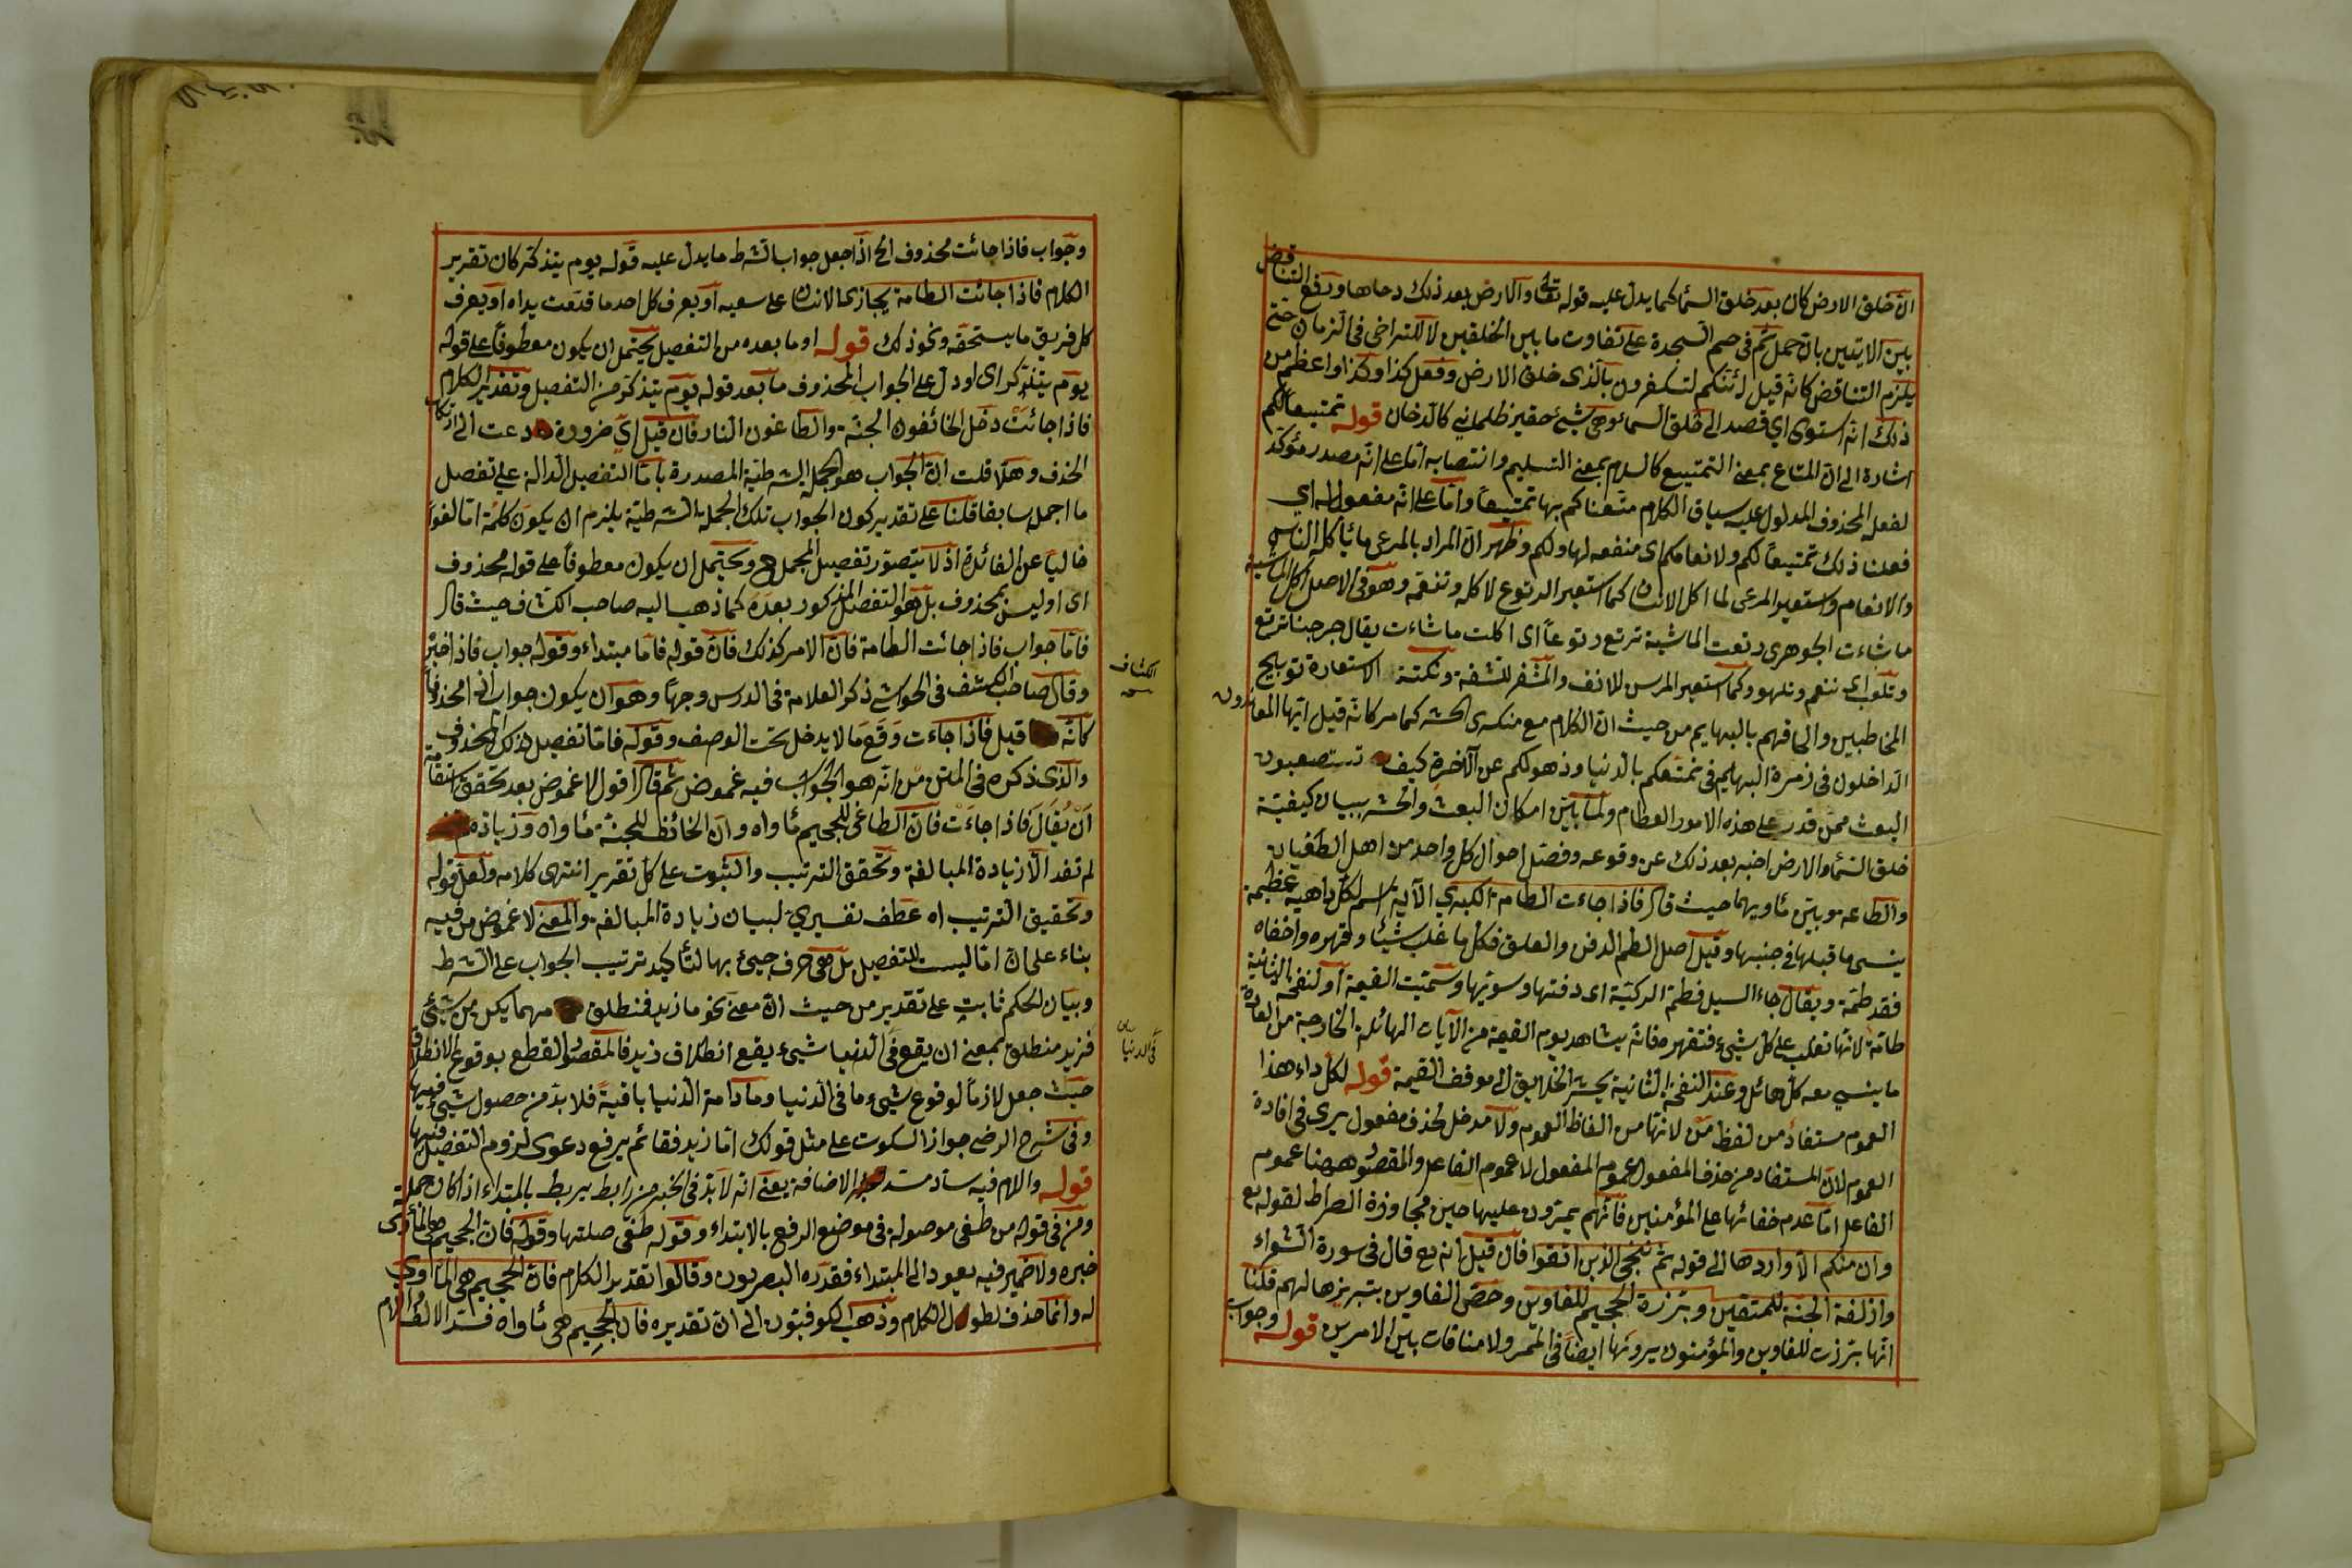 ان خلق الارض كان بعد خلق السماء كما يدل عليه قوله تعالى والارض بعد ذلك دحاها ويدفع التناقض
بين الايتين بان حمل ثم في حم السجدة على تفاوت ما بين الخلقين لا للتراخي في الزمان حتى
يلزم التناقض كانه قيل لئنكم لتكفرون بالذي خلق الارض وفعل كذا وكذا واعظم من
ذلك انه استوى اي قصد الى خلق السماء وهي شيء حقير ظلماني كالدخان قوله تمتيعا لكم
اشارة الى ان المتاع بمعنى التمتيع كالسلام بمعنى التسليم وانتصابه اما على انه مصدر مؤكد
لفعله المحذوف المدلول عليه سياق الكلام متعناكم بها تمتيعا واما على انه مفعول له اي
فعلنا ذلك تمتيعا لكم ولانعامكم اى منفعه لها ولكم وظهر ان المراد بالمرعى ما يأكله الناس
والانعام واستعير المرعى لما اكل الانسان كما استعير الرتوع لاكله وتنعمه وهو في الاصل اكل الماشية
ما شاءت الجوهرى رتعت الماشية ترتع رتوعا اى اكلت ما شاءت يقال خرجنا نرتع
ونلعب اى ننعم ونلهو وكما استعير المرسن للانف والمشفر للشفة ونكتة الاستعارة توبيخ
المخاطبين والحاقهم بالبهايم من حيث ان الكلام مع منكرى الحشر كما مر كانه قيل ايها المعاندون
الداخلون في زمرة البهايم في تمتعكم بالدنيا وذهولكم عن الآخرة كيف تستصعبون
البعث ممن قدر على هذه الامور العظام ولما بين امكان البعث والحشر ببيان كيفية
خلق السماء والارض اخبر بعد ذلك عن وقوعه وفصل احوال كل واحد من اهل الطغيان
والطاعه وبين مأويهما حيث قال فاذا جاءت الطامة الكبرى الآية اسم لكل داهية عظيمة
ينسى ما قبلها في جنبها وقيل اصل الطم الدفن والعلو فكل ما غلب شيئا وقهره واخفاه
فقد طمه ويقال جاء السيل فطم الركية اى دفنها وسويها وسميت القيمة او النفخة الثانية
طامة لانها تغلب على كل شيء فتقهره فانه يشاهد يوم القيمة من الآيات الهائلة الخارجة من العادة
ما ينسي معه كل هائل وعند النفخة الثانية يحشر الخلايق الى موقف القيمة قوله لكل داء هذا
العموم مستفاد من لفظ من لانها من الفاظ العموم ولا مدخل لحذف مفعول يرى في افادة
العموم لان المستفاد من حذف المفعول عموم المفعول لا عموم الفاعل والمقصود ههنا عموم
الفاعل اما عدم خفائها على المؤمنين فانهم يمرون عليها حين مجاوزة الصراط لقوله تع
وان منكم الا واردها الى قوله ثم ننجى الذين اتقوا فان قيل انه تع قال في سورة الشعراء
وازلفة الجنة للمتقين وبرزة الجحيم للغاوين وخص الغاوين بتبريزها لهم قلنا
انها برزت للغاوين والمؤمنون يرونها ايضا في الممر ولا منافات بين الامرين قوله وجواب
وجواب فاذا جائت محذوف الخ اذا جعل جواب الشرط ما يدل عليه قوله يوم يتذكر كان تقرير
الكلام فاذا جائت الطامة يجازى الانسان على سعيه او يعرف كل احد ما قدمت يداه او يعرف
كل فريق ما يستحقه ونحو ذلك قوله او ما بعده من التفصيل يحتمل ان يكون معطوفا على قوله
يوم يتذكر اى او دل على الجواب المحذوف ما بعد قوله يوم يتذكر من التفصيل وتقدير الكلام
فاذا جائت دخل الخائفون الجنة والطاغون النار فان قيل اي ضرورة دعت الى ارتكاب
الحذف وهلا قلت ان الجواب هو الجملة الشرطية المصدرة باما التفصيل الدالة على تفصيل
ما اجمل سابقا قلنا على تقدير كون الجواب تلك الجملة الشرطية يلزم ان يكون كلمة اما لغوا
خاليا عن الفائدة اذ لا يتصور تفصيل المجمل ح ويحتمل ان يكون معطوفا على قوله محذوف
اى او ليس بمحذوف بل هو التفصيل المذكور بعده كما ذهب اليه صاحب الكشاف حيث قال
فاما جواب فاذا جائت الطامة فان الامر كذلك فان قوله فاما مبتداء وقوله جواب فاذا خبر
وقال صاحب الكشف في الحواشي ذكر العلامة في الدرس وجها وهو ان يكون جواب اذا محذوفا
الكشاف
كانه قيل فاذا جاءت وقع ما لا يدخل تحت الوصف وقوله فاما تفصيل لذلك المحذوف
والذى ذكره في المتن من انه هو الجواب فيه غموض ثم قال اقول لا غموض بعد تحقق استقامة
ان يقال فاذا جاءت فان الطاغى للجحيم مأواه وان الخائف للجنة مأواه وزيادة
لم تفد الا زيادة المبالغة وتحقق الترتيب والثبوت على كل تقرير انتهى كلامه ولعل قوله
وتحقيق الترتيب اه عطف تفسيرى لبيان زيادة المبالغة والمعنى لا غموض من فيه
بناء على ان اما ليست للتفصيل بل هي حرف جيئ بها لتأكيد ترتيب الجواب على الشرط
وبيان الحكم ثابت على تقدير من حيث ان معنى نحو ما زيد فنطلق مهما يكن من شيئ
فزيد منطلق بمعنى ان يقع في الدنيا شيء يقع انطلاق زيد فالمقصود القطع بوقوع الانطلاق
في الدنيا
حيث جعل لازما لوقوع شيء ما في الدنيا وما دامة الدنيا باقية فلا بد من حصول شيء فيها
وفي شرح الرضى جواز السكوت على مثل قولك اما زيد فقائم يرفع دعوى لزوم التفصيل فيها
قوله واللام فيه ساد مسد الاضافة يعنى انه لا بد في الخبر من رابط يربط بالمبتداء اذا كان جملة
ومن في قوله من طغى موصولة في موضع الرفع بالابتداء وقوله طغى صلتها وقوله فان الجحيم هي المأوى
خبره ولا ضمير فيه يعود الى المبتداء فقدره البصريون وقالوا تقدير الكلام فان الجحيم هي المأوى
له وانما حذف لطول الكلام وذهب الكوفيون الى ان تقديره فان الجحيم هي مأواه فسد الالف واللام